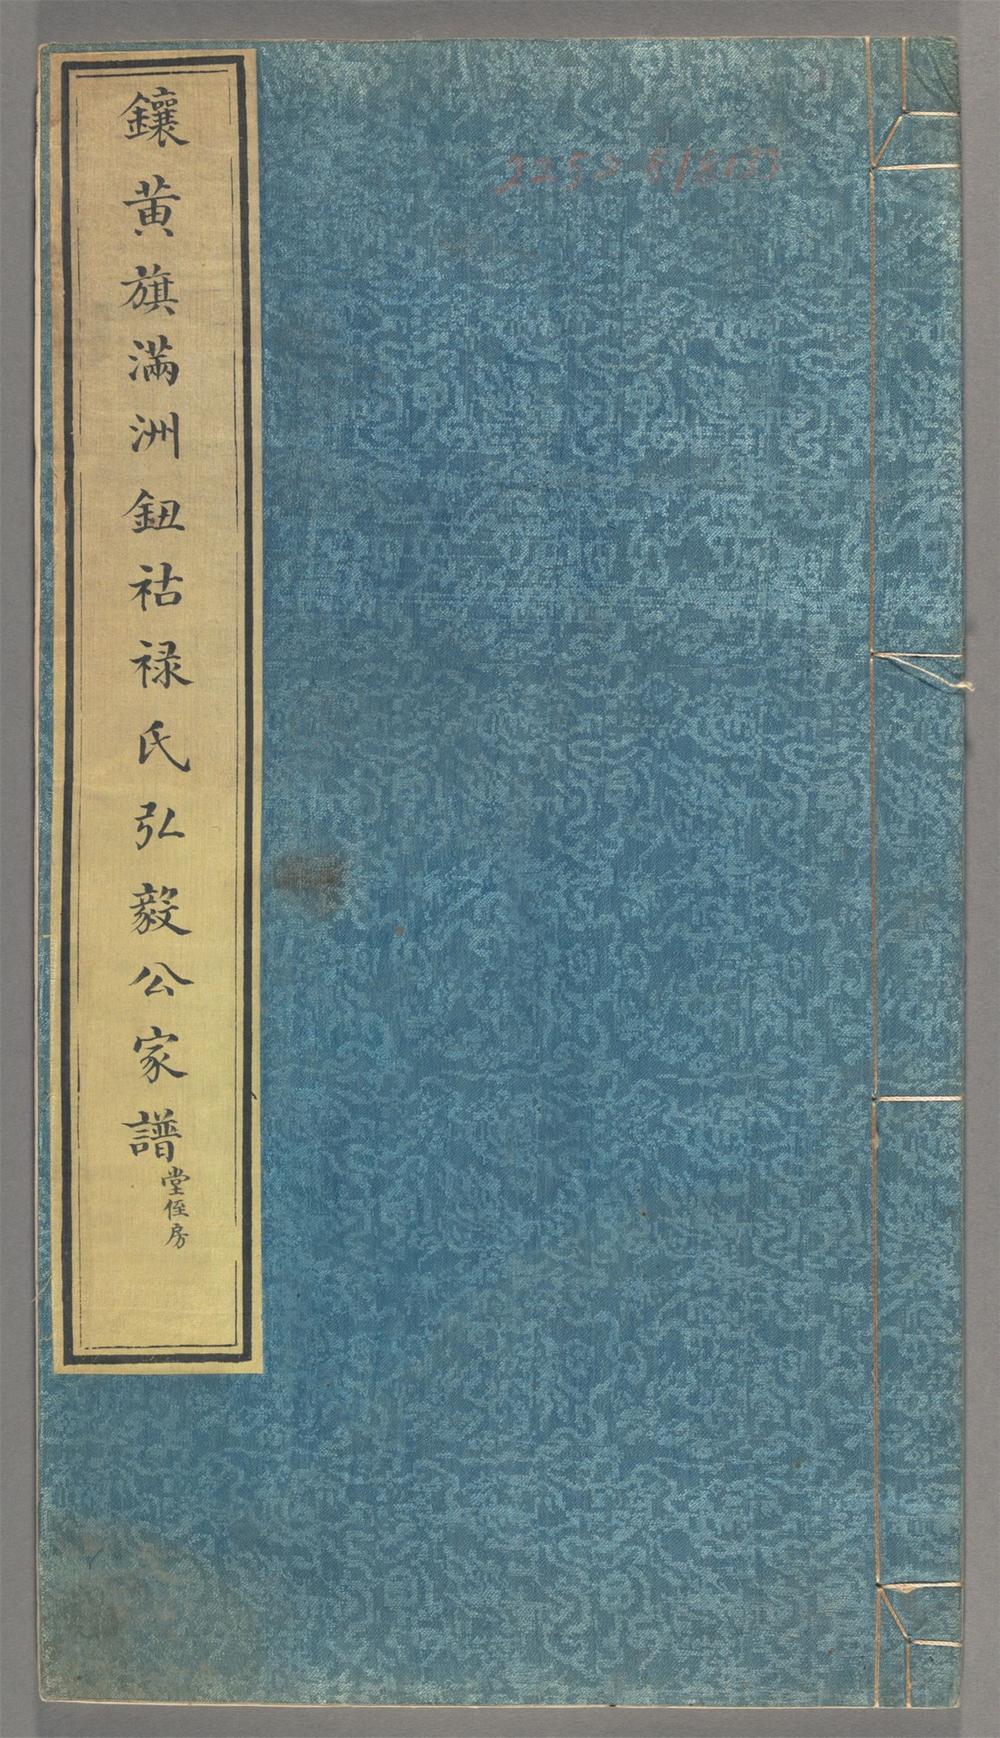 鑲黃旗滿洲鈕祜祿氏弘毅公家譜
堂侄房